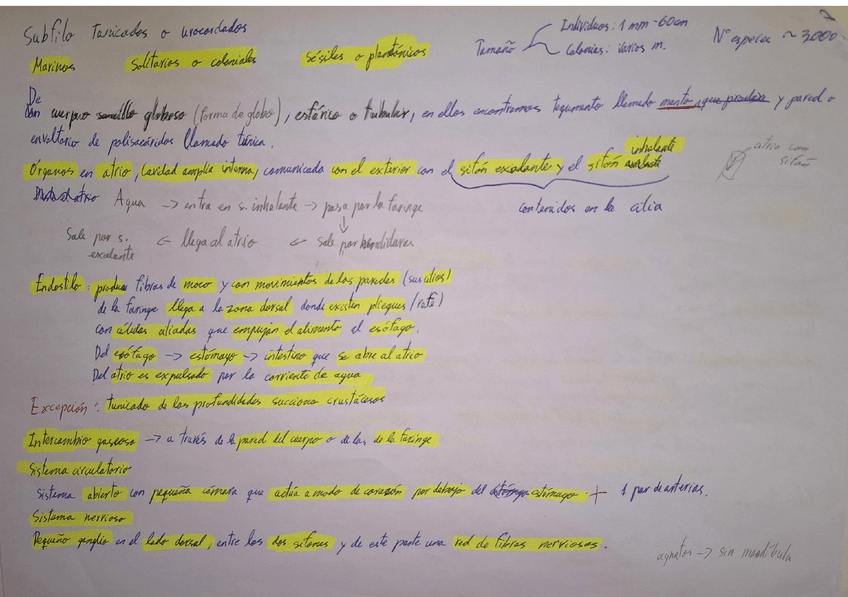 Subfilo Tunicados o urocordados
Individuos: 1 mm - 60cm
Tamaño
Colonias: varios m.
Nº especies ~ 3000
Marinos Solitarios o coloniales Sésiles o planctónicos
De cuerpo sencillo globoso (forma de globo), esférico o tubular, en ellos encontramos tegumento llamado manto que produce y pared o
envoltorio de polisacáridos llamado túnica.
Órganos en atrio, cavidad amplia interna, comunicada con el exterior con el sifón exalante y el sifón inhalante
atrio con
sifón
Agua -> entra en s. inhalante -> pasa por la faringe
contenidos en la cilia
Sale por s. <- llega al atrio <- sale por hendiduras
exalante
Endostilo: produce fibras de moco y con movimientos de las paredes (sus cilios)
de la faringe llega a la zona dorsal donde existen pliegues / rafe)
con células ciliadas que empujan el alimento al esófago.
Del esófago -> estómago -> intestino que se abre al atrio
Del atrio es expulsado por la corriente de agua
Excepción: tunicado de las profundidades succiona crustáceos
Intercambio gaseoso -> a través de la pared del cuerpo o de las de la faringe
Sistema circulatorio
Sistema abierto con pequeña cámara que actúa a modo de corazón por debajo del estómago + 1 par de arterias.
Sistema nervioso
Pequeño ganglio en el lado dorsal, entre los dos sifones y de este parte una red de fibras nerviosas.
agnatos -> sin mandíbula